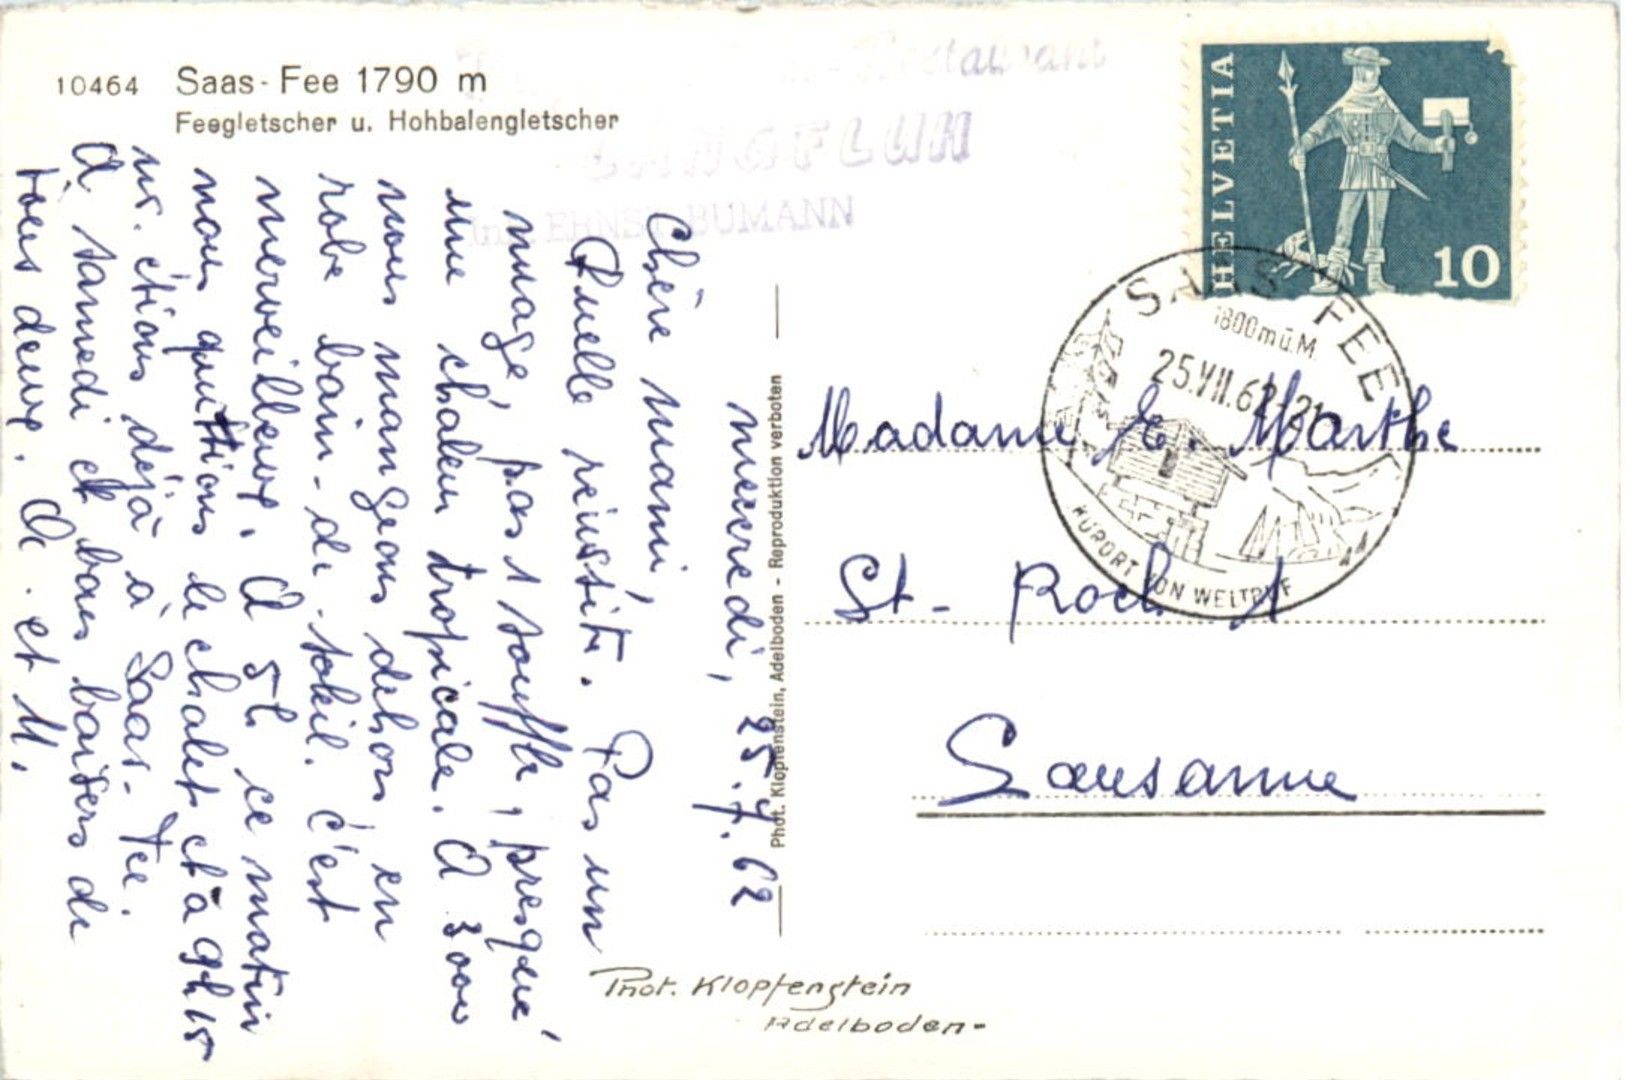 10464 Saas-Fee 1790 m
Feegletscher u. Hohbalengletscher
Restaurant
LÄNGFLUH
Inh. ERNST BUMANN
HELVETIA
10
SAAS-FEE
1800 m ü. M.
25.VII.62-21
KURORT VON WELTRUF
mercredi, 25.7.62
Chère mami,
Quelle réussite. Pas un
nuage, pas 1 souffle, presque
une chaleur tropicale. A 3000
nous mangeons dehors en
robe bain-de-soleil. C'est
merveilleux. A 5h ce matin
nous quittions le chalet et à 9h15
ns. étions déjà à Saas-Fee.
A samedi et bons baisers de
tous deux. D. et M.
Madame E. Marthe
St-Roch 1
Lausanne
Phot. Klopfenstein, Adelboden - Reproduktion verboten
Phot. Klopfenstein
Adelboden-